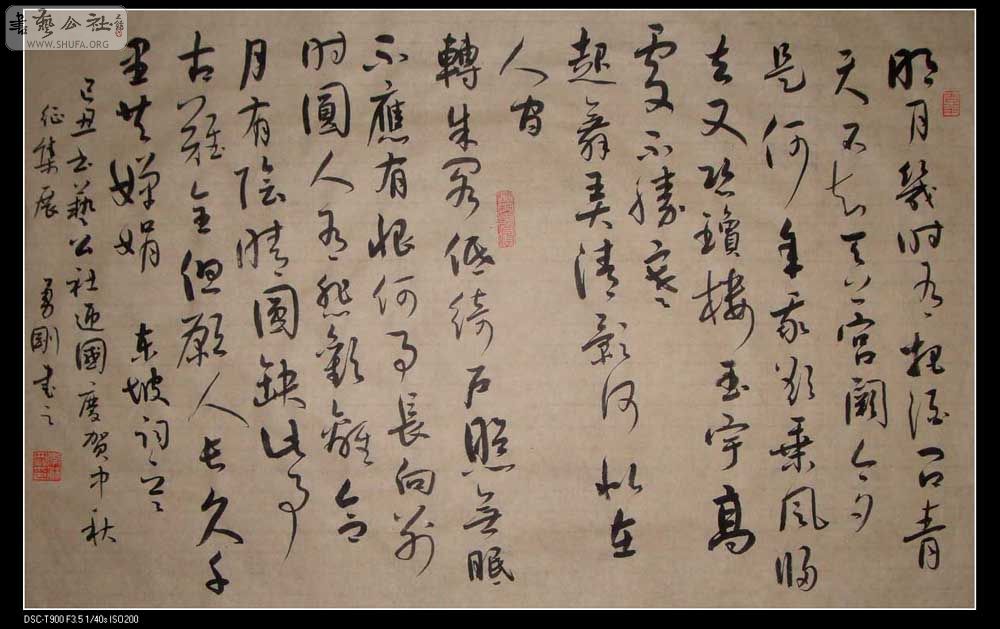 書藝公社
WWW.SHUFA.ORG
明月幾時有把酒問青
天不知天上宮闕今夕
是何年我欲乘風歸
去又恐瓊樓玉宇高
處不勝寒
起舞弄清影何似在
人間
轉朱閣低綺戶照無眠
不應有恨何事長向別
時圓人有悲歡離合
月有陰晴圓缺此事
古難全但願人長久千
里共嬋娟 東坡詞
己丑書藝公社迎國慶賀中秋
征集展 勇剛書之
DSC-T900 F3.5 1/40s ISO200